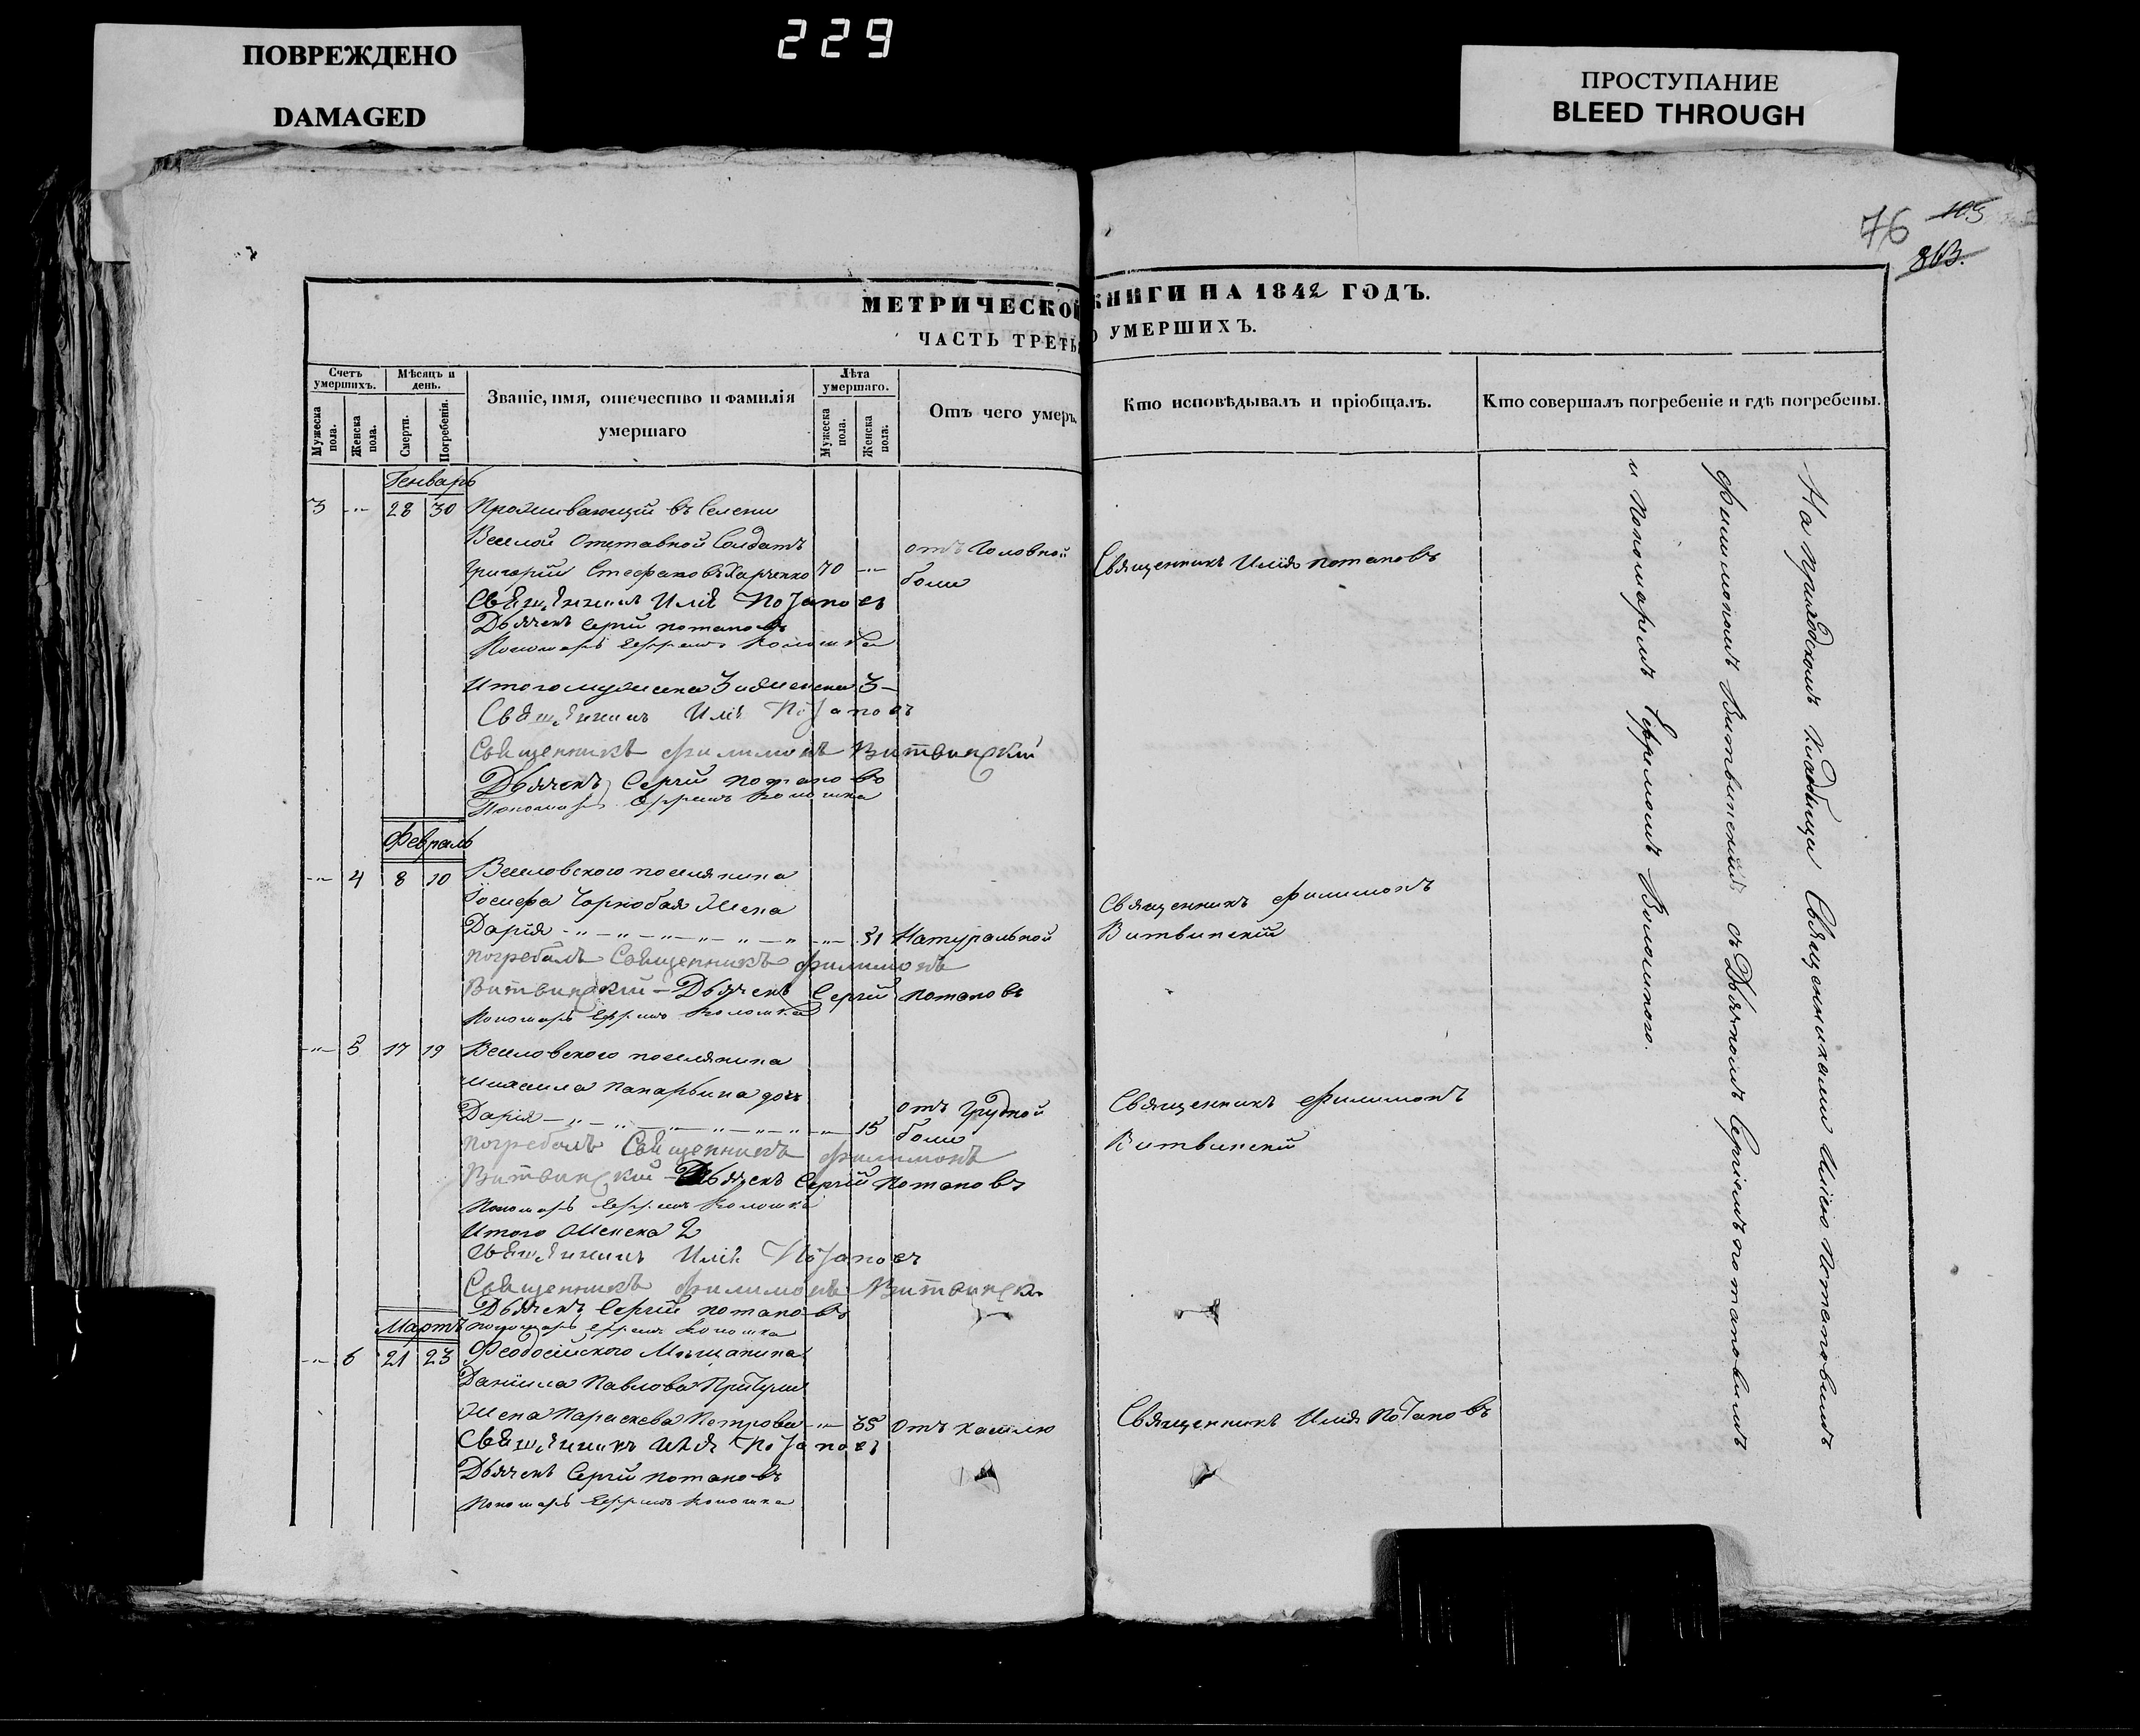 ПОВРЕЖДЕНО
DAMAGED
229
ПРОСТУПАНИЕ
BLEED THROUGH
76 103
813.
МЕТРИЧЕСКОЙ КНИГИ НА 1842 ГОДЪ.
ЧАСТЬ ТРЕТЬ О УМЕРШИХЪ.
Счетъ умершихъ.
Мѣсяцъ и день.
Званіе, имя, отечество и фамилія умершаго
Лѣта умершаго.
Отъ чего умеръ.
Кто исповѣдывалъ и пріобщалъ.
Кто совершалъ погребеніе и гдѣ погребены.
Мужеска пола.
Женска пола.
Смерти.
Погребенія.
Мужеска пола.
Женска пола.
Генварь
3 -"- 28 30 Проживающій въ Селеніи
Веселой Отставной Солдатъ
Григорій Стефановъ Харченко 70 -"- отъ Головной боли Священникъ Илія Потаповъ
Священникъ Иліѣ Потаповъ
Дьячекъ Сергій Потаповъ
Пономарь Ефремъ
Итого мужеска 3 и женска 3 -
Священникъ Иліѣ Потаповъ
Священникъ Филимонъ Витвинскій
Дьячекъ Сергій Потаповъ
Пономарь Ефремъ
Февраль
-"- 4 8 10 Веселовскаго поселянина
Іосифа Чорнобая Жена
Дарія -"- 31 Натуральной Священникъ Филимонъ Витвинскій
погребалъ Священникъ Филимонъ
Витвинскій - Дьячекъ Сергій Потаповъ
Пономарь Ефремъ
-"- 5 17 19 Веселовскаго поселянина
дочь
Дарія -"- 15 отъ Грудной боли Священникъ Филимонъ Витвинскій
погребалъ Священникъ Филимонъ
Витвинскій - Дьячекъ Сергій Потаповъ
Пономарь Ефремъ
Итого Женска 2
Священникъ Иліѣ Потаповъ
Священникъ Филимонъ Витвинск.
Дьячекъ Сергій Потаповъ
Мартъ
Пономарь Ефремъ
-"- 6 21 23 Феодосійскаго Мѣщанина
Даніила Павлова
Жена Параскева Петрова -"- 35 отъ кашлю Священникъ Илія Потаповъ
Священникъ Илія Потаповъ
Дьячекъ Сергій Потаповъ
Пономарь Ефремъ
На приходскомъ кладбищи Священниками Иліею Потаповымъ
Филимономъ Витвинскимъ съ Дьячкомъ Сергіемъ Потаповымъ
и Пономаремъ Ефремомъ